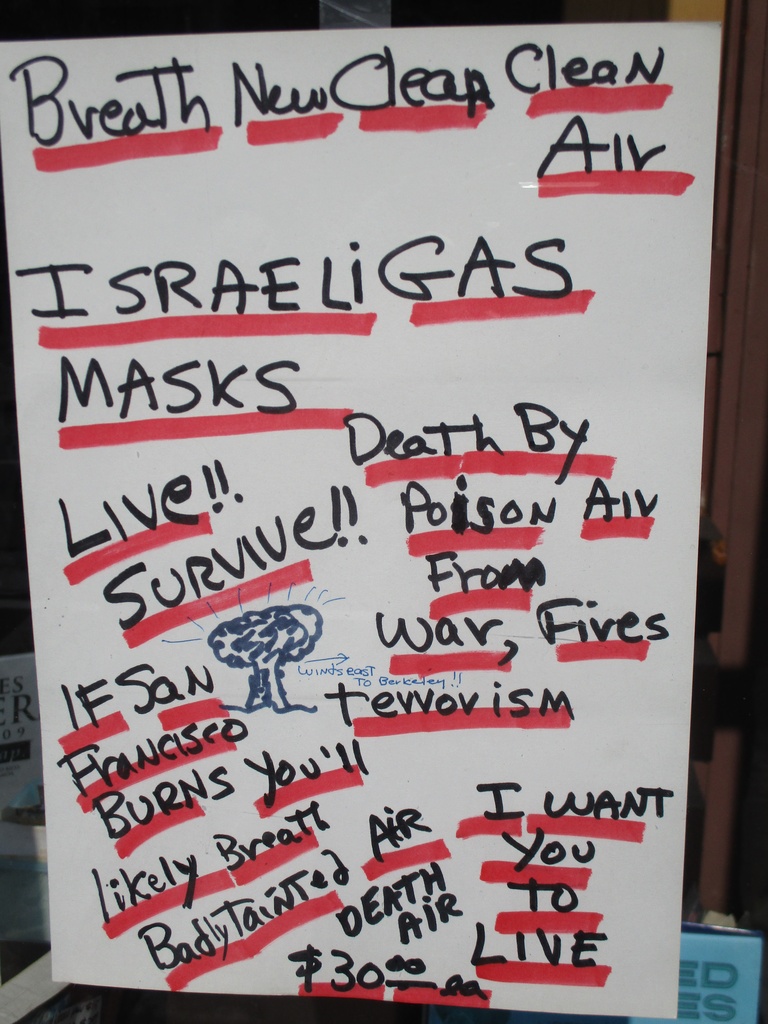 Breath New Clean Clean
Air
ISRAELi GAS
MASKS
Live!!
Survive!!
Death By
Poison Air
From
War, Fires
terrorism
Winds east
To Berkeley!!
IF San
Francisco
BURNS You'll
likely Breath AiR
Badly Tainted
DEATH
AiR
$30.00 ea
I WANT
You
TO
LIVE
ES
ER
09
ED
ES